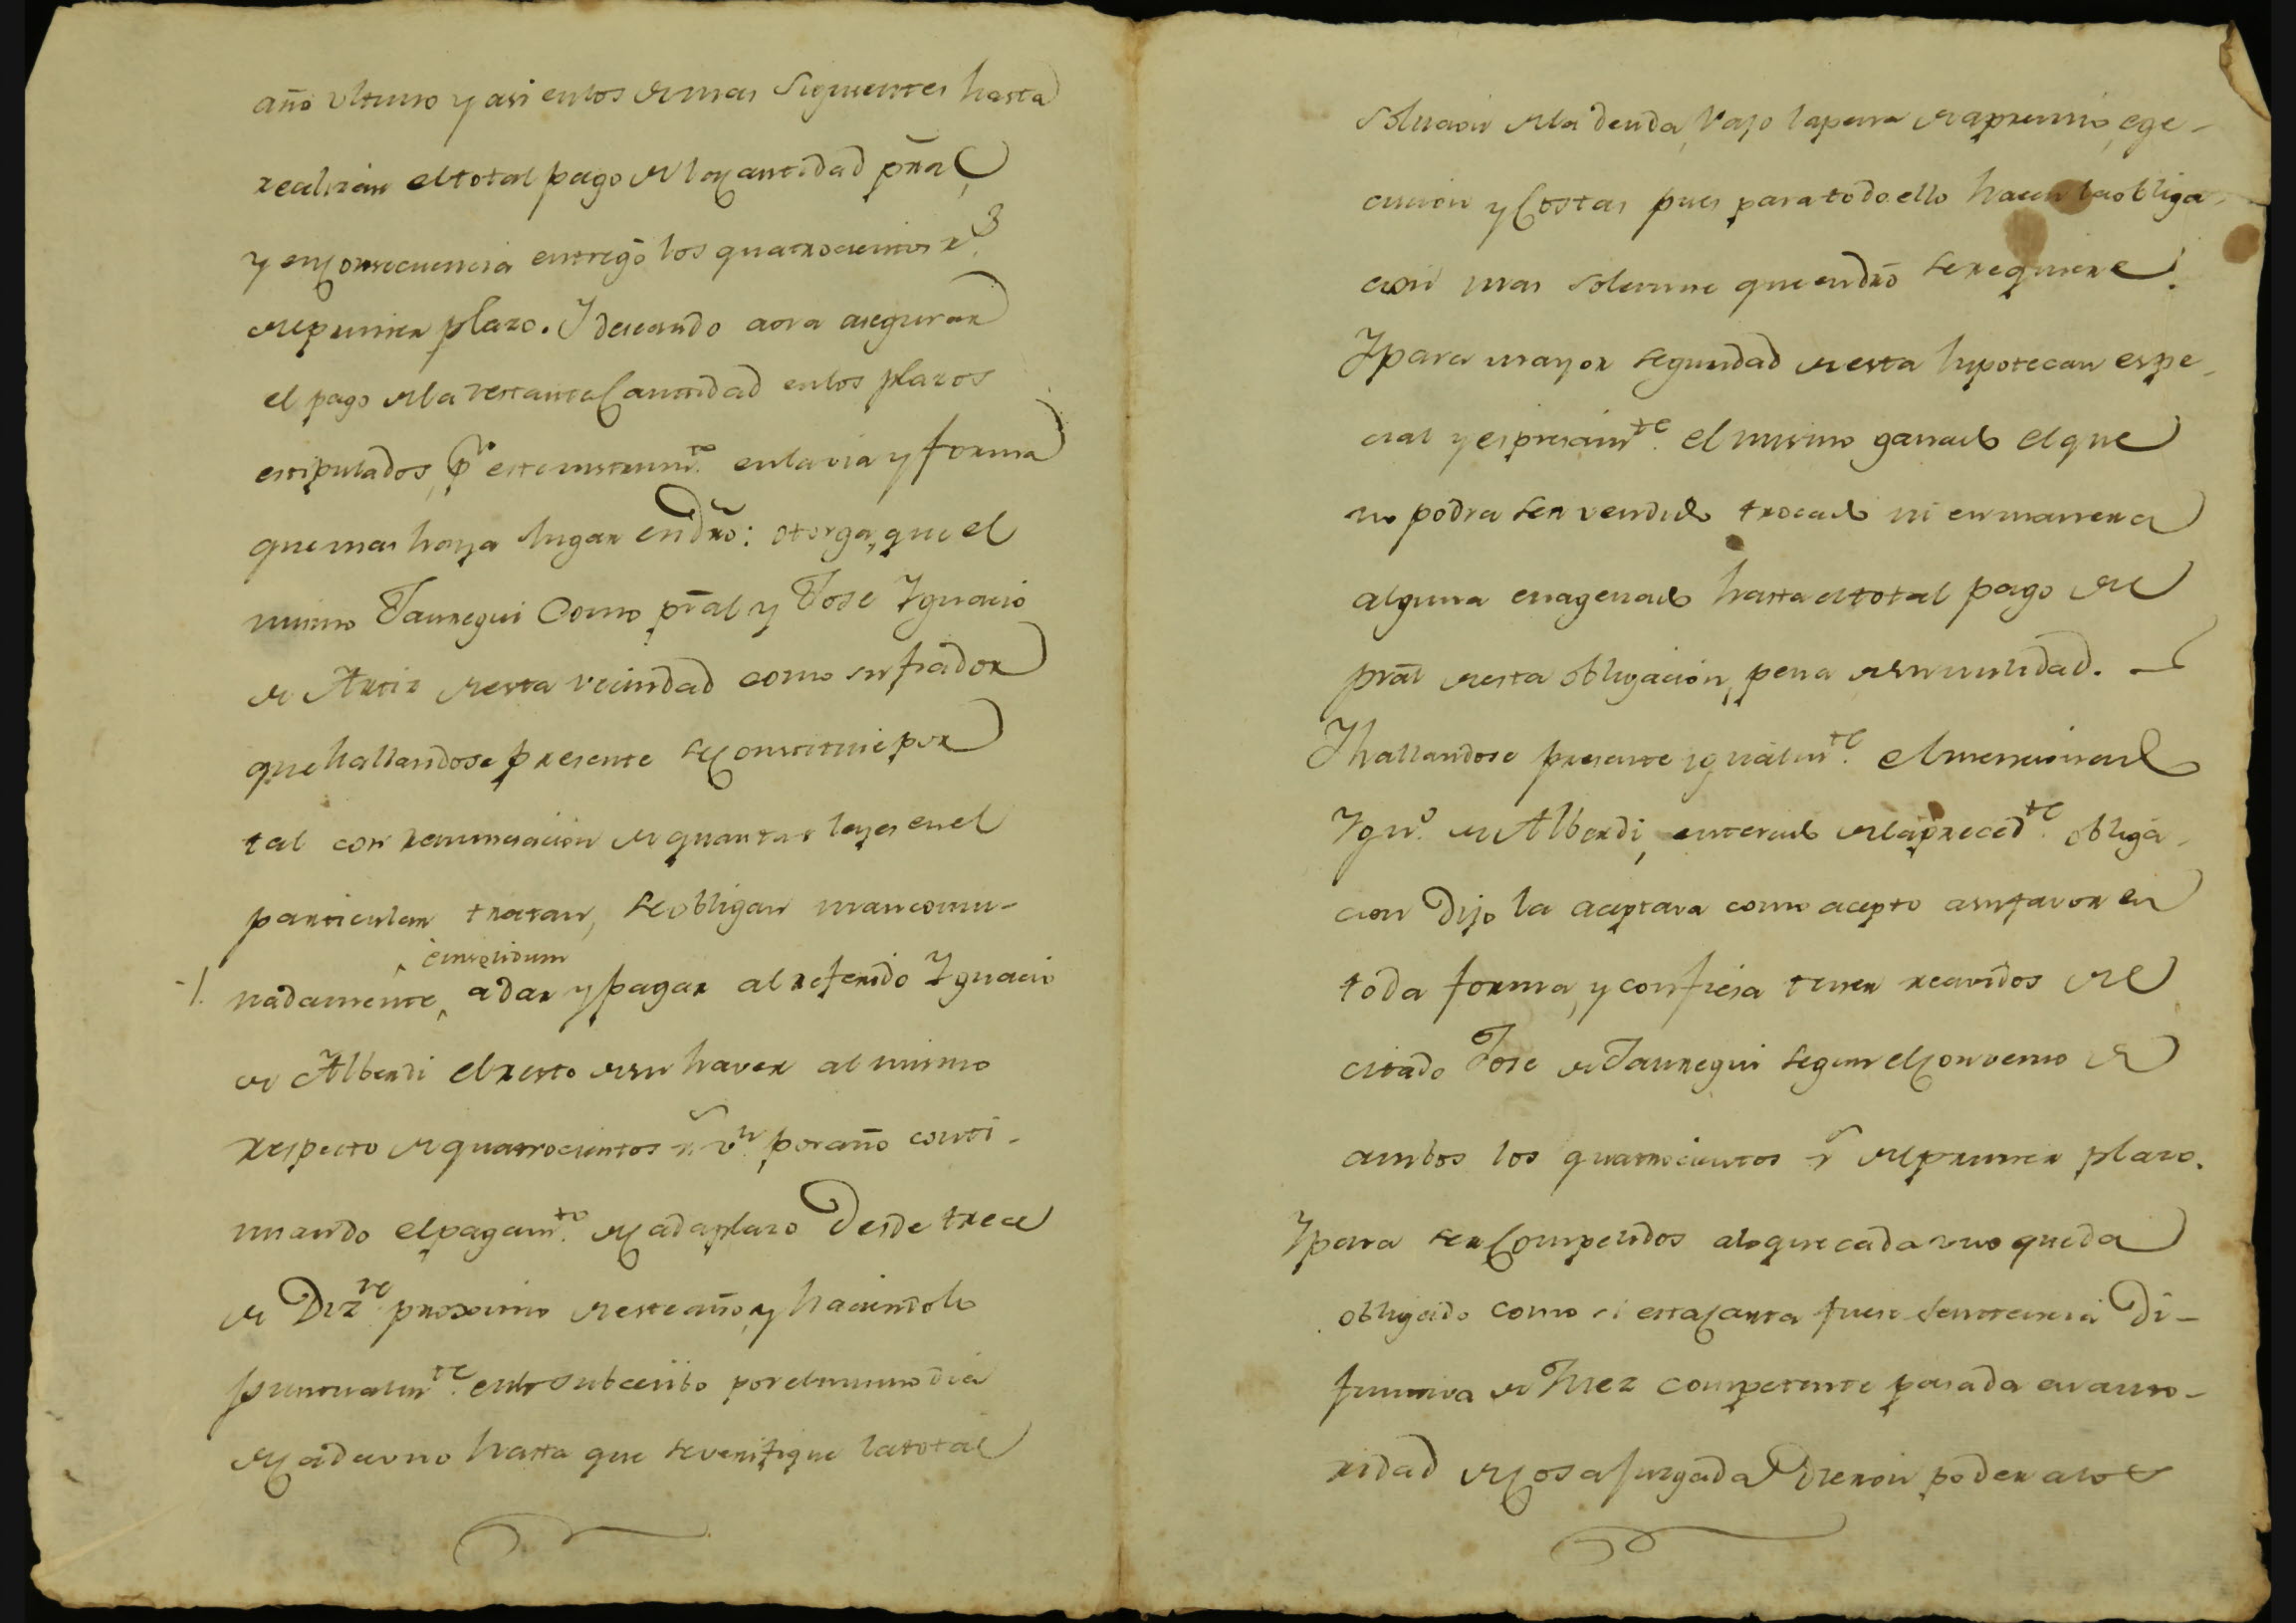 año ultimo y asi en los demas siguientes hasta
realizar el total pago de la cantidad pñal,
y en consecuencia entregó los quatrocientos rs.
del primer plazo. Y deseando aora asegurar
el pago de la restante cantidad en los plazos
estipulados, pr. este instrumto. en la via y forma
que mas haya lugar en dro: otorga, que el
mismo Jauregui como pral y Jose Ygnacio
de Artiz de esta vecindad como su fiador
que hallandose presente se constituie por
tal con renunciacion de quantas leyes en el
particular tratan, se obligan mancomu-
é insolidum
nadamente, a dar y pagar al referido Ygnacio
de Alberdi el resto de su haver al mismo
respecto de quatrocientos rs. vn. por año conti-
nuando el pagamto. de cada plazo desde trece
de Dizre. proximo de este año, y haciendolo
puntualmte. en lo subcesibo por el mismo dia
de cada uno hasta que se verifique la total
solucion de la deuda, vajo la pena de apremio, ege-
cucion y costas pues para todo ello hacen la obliga-
cion mas solemne que en dro se requiere.
Y para mayor seguridad de esta hipotecan espe-
cial y espresamte. el mismo ganado el que
no podra ser vendido trocado ni en manera
alguna enagenado hasta el total pago del
pral de esta obligacion, pena de su nulidad.
Y hallandose presente igualmte. el mencionado
Ygno. de Alberdi, enterado de la precedte. obliga-
cion dijo la aceptava como acepto a su favor en
toda forma, y confiesa tener recividos del
citado Jose de Jauregui segun el convenio de
ambos los quatrocientos rs. del primer plazo.
Y para ser compelidos a lo que cada uno queda
obligado como si esta carta fuese sentencia di-
finitiva de Juez competente pasada en auto-
ridad de cosa juzgada dieron poder a los